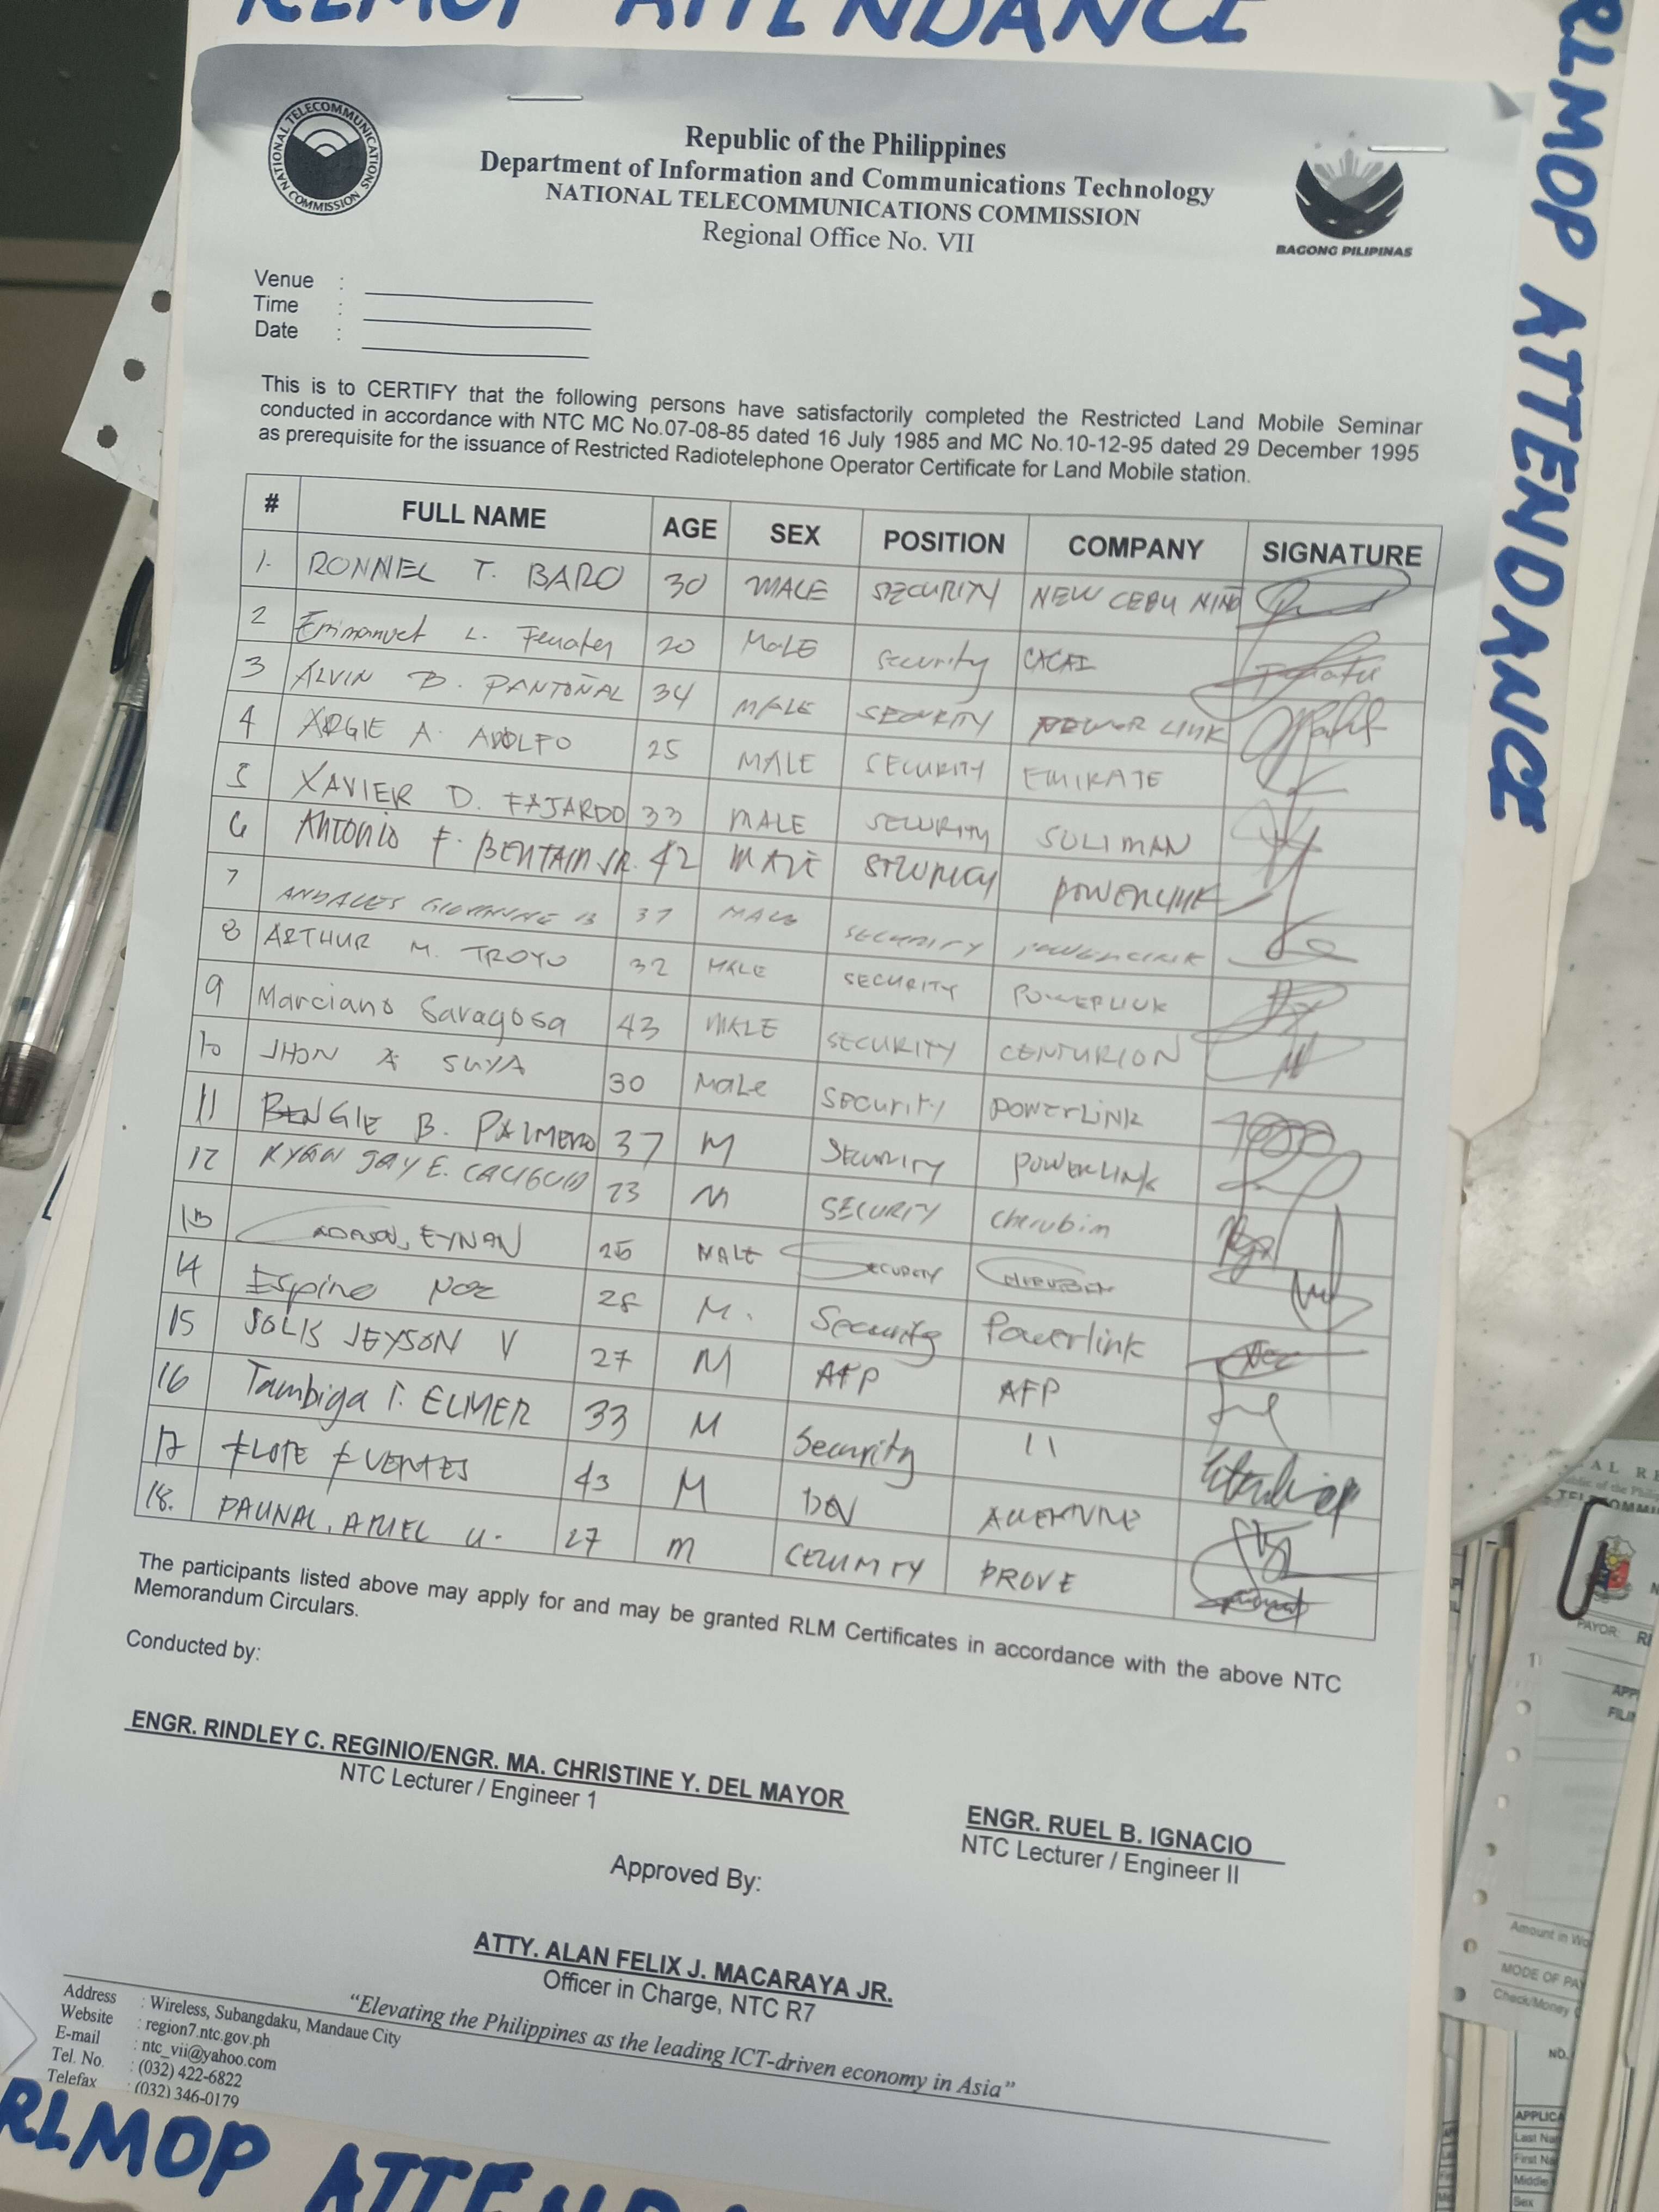 RLMOP ATTENDANCE
NATIONAL TELECOMMUNICATIONS COMMISSION
Republic of the Philippines
Department of Information and Communications Technology
NATIONAL TELECOMMUNICATIONS COMMISSION
Regional Office No. VII
BAGONG PILIPINAS
Venue :
Time :
Date :
This is to CERTIFY that the following persons have satisfactorily completed the Restricted Land Mobile Seminar
conducted in accordance with NTC MC No.07-08-85 dated 16 July 1985 and MC No.10-12-95 dated 29 December 1995
as prerequisite for the issuance of Restricted Radiotelephone Operator Certificate for Land Mobile station.
# FULL NAME AGE SEX POSITION COMPANY SIGNATURE
1. RONNEL T. BARO 30 MALE SECURITY NEW CEBU NINO
2 Emmanuel L. 20 MALE Security
3 ALVIN B. PANTOÑAL 34 MALE SECURITY POWER LINK
4 ARGIE A. ADOLFO 25 MALE SECURITY EMIRATE
5 XAVIER D. FAJARDO 33 MALE SECURITY SULIMAN
6 Antonio F. BENTAIN JR. 42 MALE POWERLINK
7 ANDALES B 37 MALE SECURITY POWERLINK
8 ARTHUR M. TROYO 32 MALE SECURITY POWERLINK
9 Marciano Saragosa 43 MALE SECURITY CENTURION
10 JHON A SUYA 30 MaLe Security POWERLINK
11 BENGIE B. PALMERO 37 M SECURITY POWERLINK
12 RYAN JAY E. 23 M SECURITY Cherubim
13 EYNAN MALE SECURITY CHERUBIM
14 Espino Noe 28 M. Security Powerlink
15 SOLIS JEYSON V 27 M AFP AFP
16 Tambiga T. ELMER 33 M Security 11
17 FLOTE FUENTES 43 M
18. PAUNAL, ARIEL U. 27 m CECUMITY PROVE
The participants listed above may apply for and may be granted RLM Certificates in accordance with the above NTC
Memorandum Circulars.
Conducted by:
ENGR. RINDLEY C. REGINIO/ENGR. MA. CHRISTINE Y. DEL MAYOR
NTC Lecturer / Engineer 1
ENGR. RUEL B. IGNACIO
NTC Lecturer / Engineer II
Approved By:
ATTY. ALAN FELIX J. MACARAYA JR.
Officer in Charge, NTC R7
"Elevating the Philippines as the leading ICT-driven economy in Asia"
Address : Wireless, Subangdaku, Mandaue City
Website : region7.ntc.gov.ph
E-mail : ntc_vii@yahoo.com
Tel. No. : (032) 422-6822
Telefax : (032) 346-0179
RLMOP ATTENDA
RLMOP ATTENDANCE
PAYOR:
Amount in Wo
MODE OF PA
Check/Money
NO.
APPLICA
Last Na
First Na
Middle
Sex